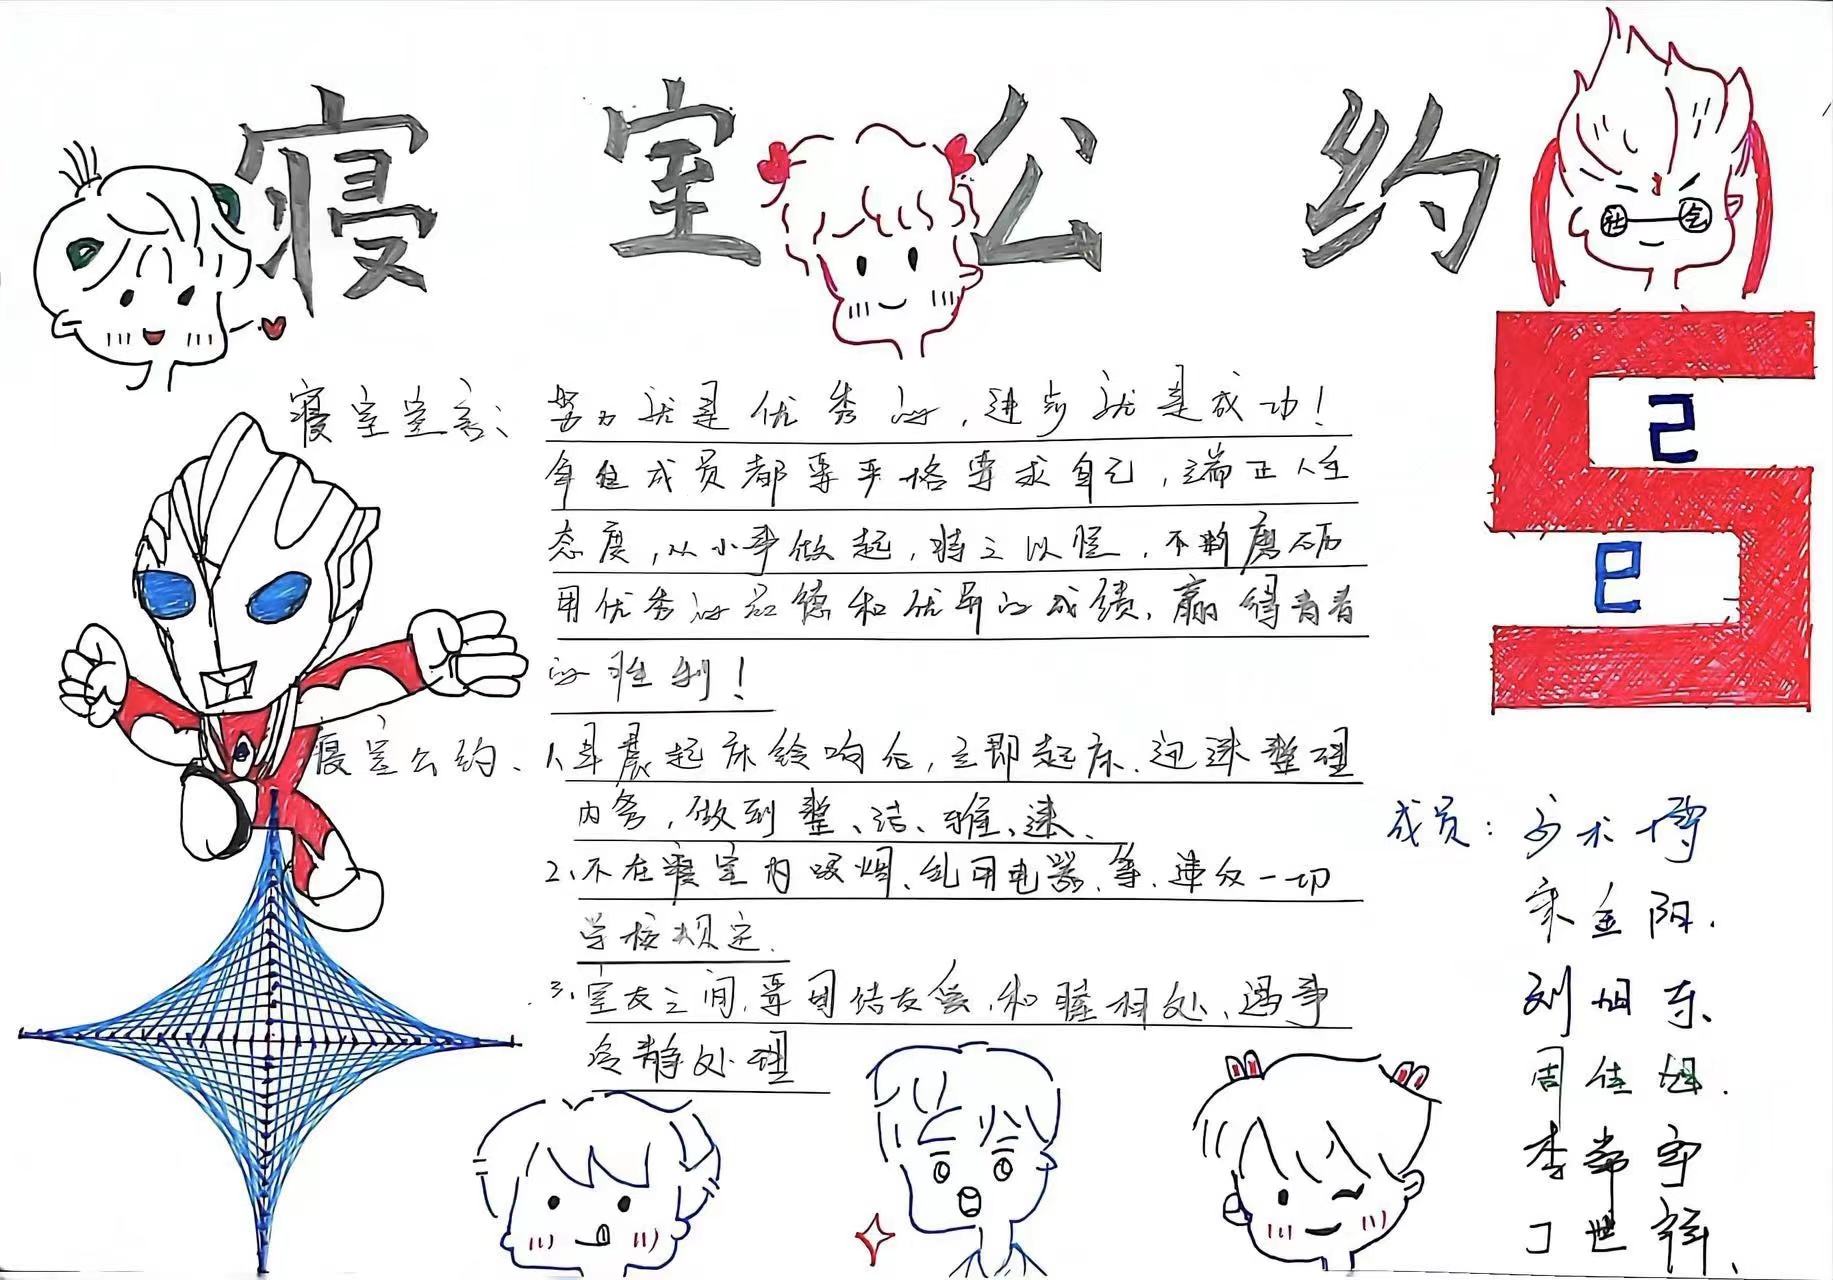 寝室公约
社会
寝室宣言：努力就是优秀的，进步就是成功！
每位成员都要严格要求自己，端正人生
态度，从小事做起，持之以恒，不断磨砺
用优秀的品德和优异的成绩，赢得青春
的胜利！
寝室公约、1、早晨起床铃响后，立即起床.迅速整理
内务，做到整、洁、雅、速、
2、不在寝室内吸烟、乱用电器、等、违反一切
学校规定.
3、室友之间，要团结友爱，和睦相处、遇事
冷静处理
5
2
9
成员：术博
宋金阳.
刘旭东、
周佳旭.
李常宇
丁世祥、